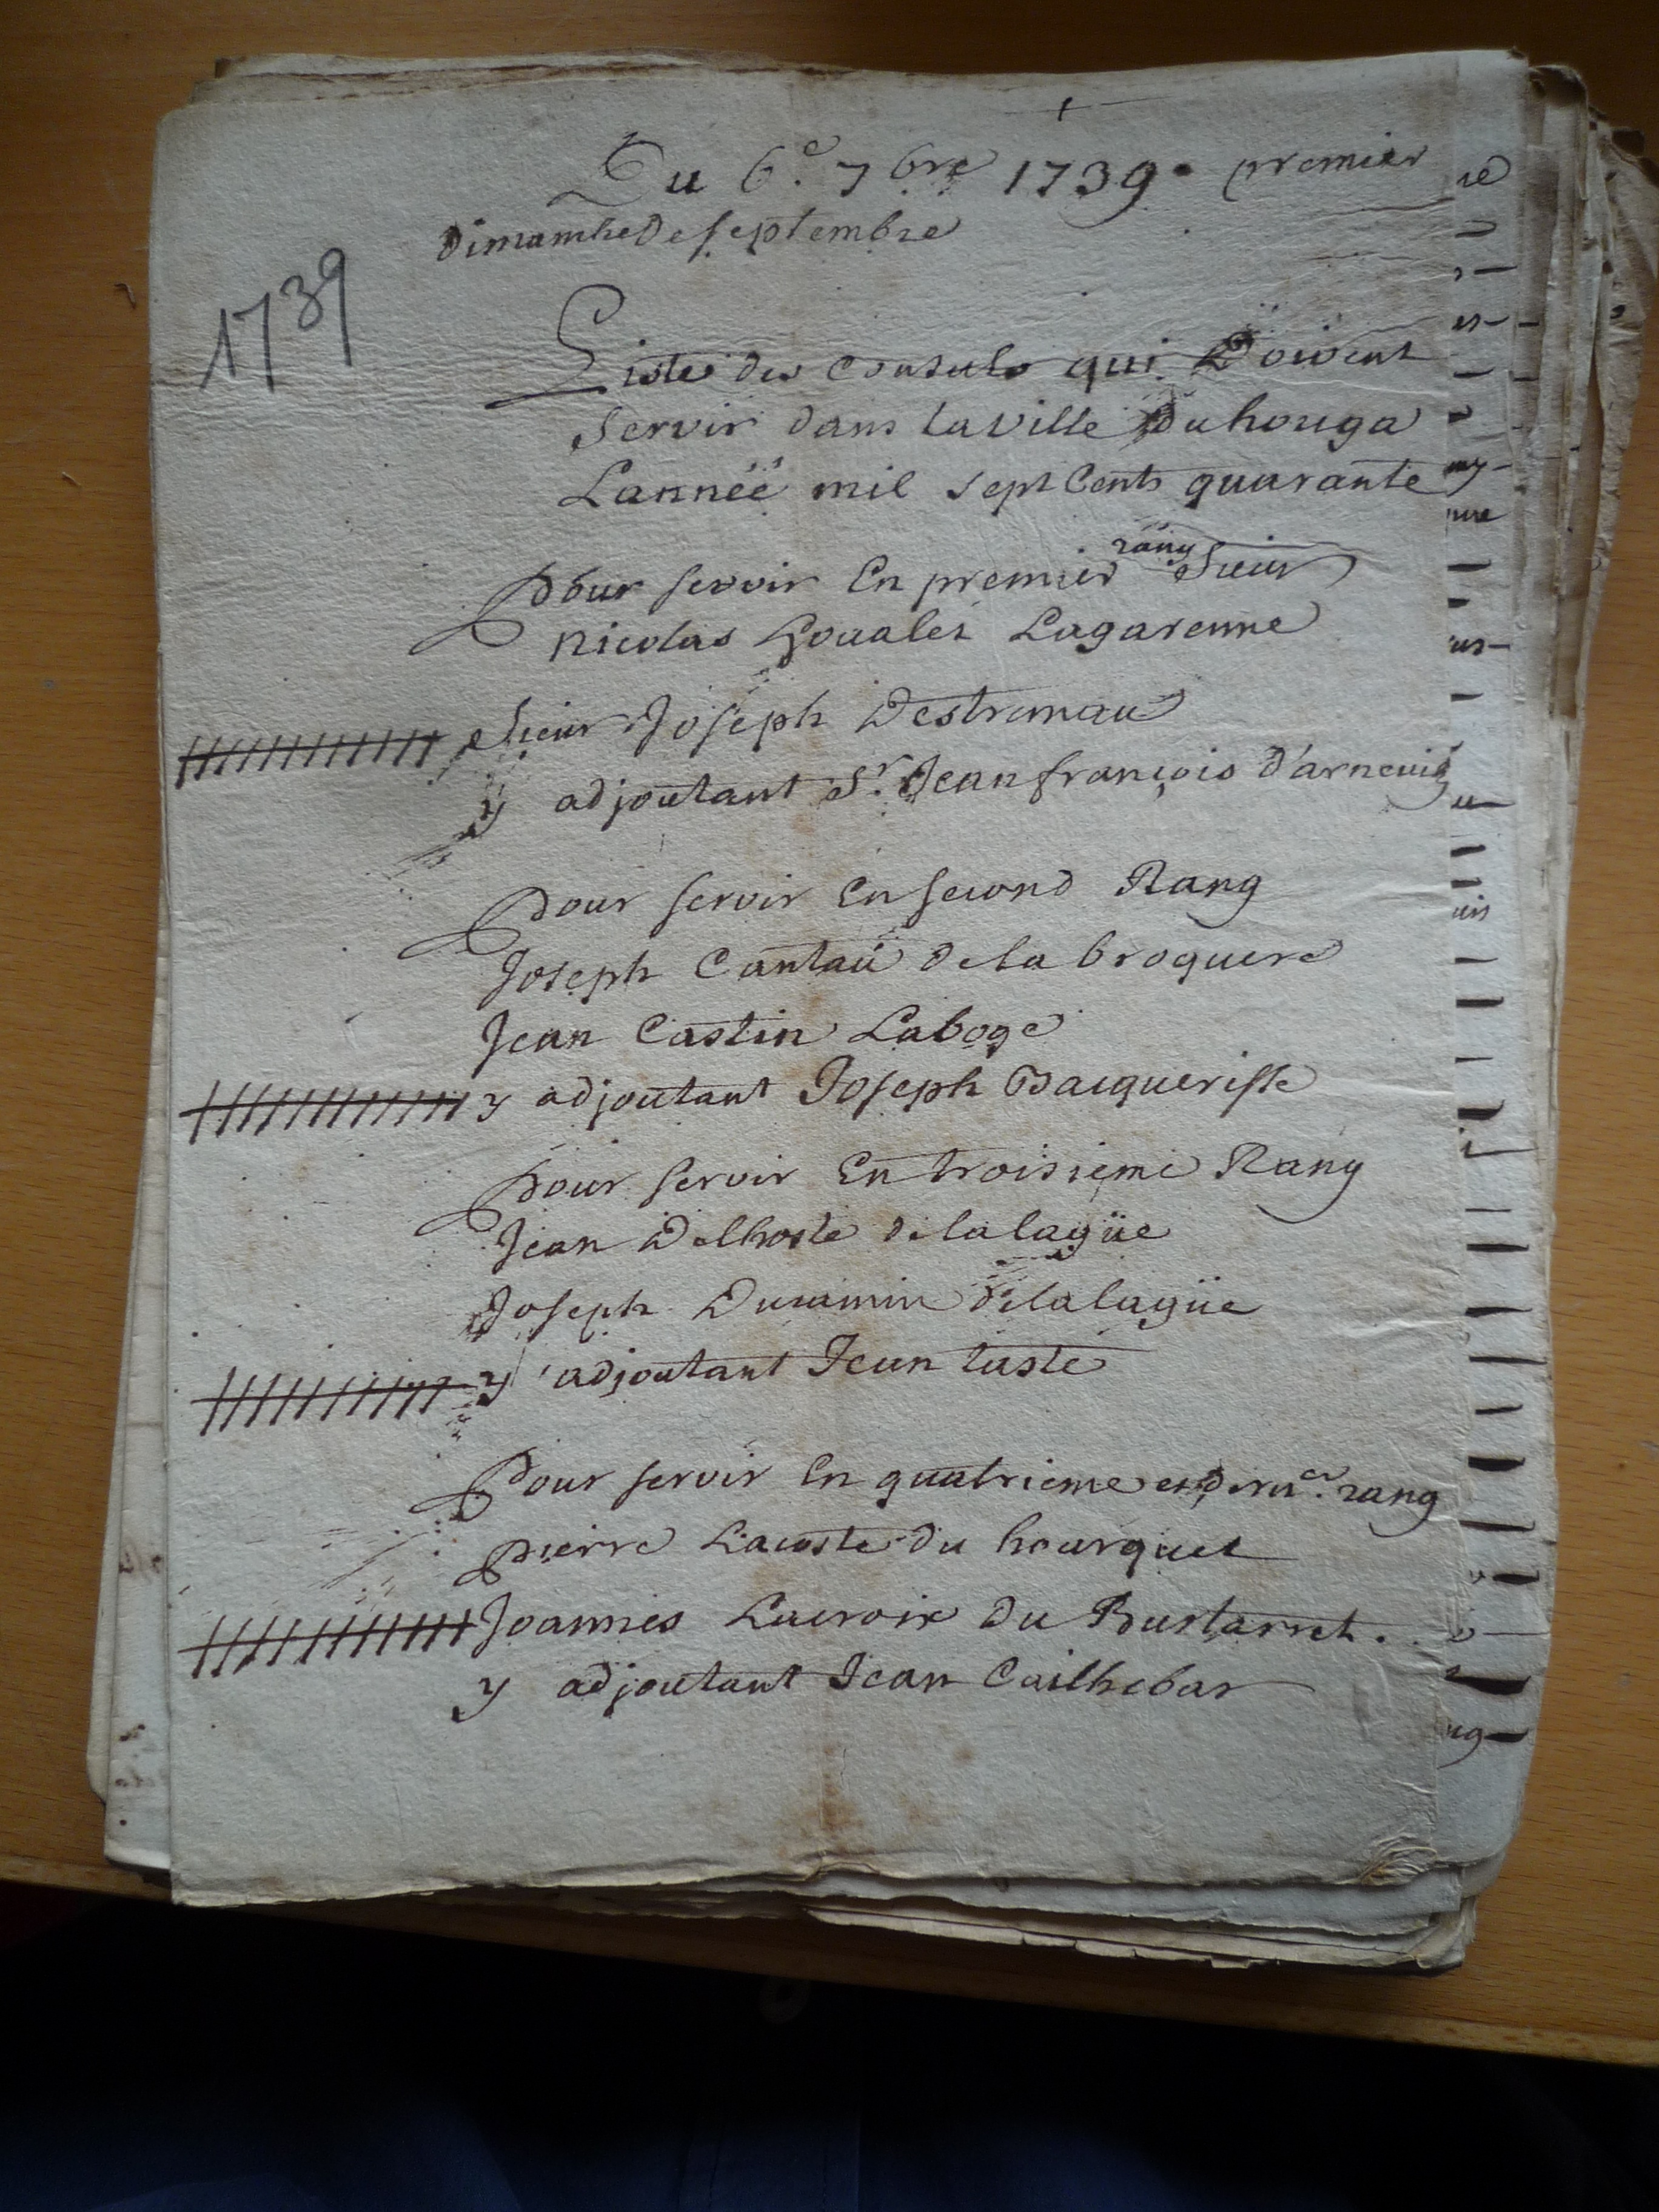 Du 6e. 7bre 1739. premier
Dimamche De septembre
1739
Liste des Consuls qui Doivent
Servir dans la Ville Du houga
Lannéë mil sept Cents quarante
pour servir En premier rang Sieur
Nicolas Lagarenne
Sieur Joseph Destremau
y adjoutant Sr. Jean françois d'arneuilh
Pour servir En second Rang
Joseph Cantau de la broquere
Jean Castin Laboge
y adjoutant Joseph Bacquerisse
pour servir En troisieme Rang
Jean Delhoste de la lagüe
Joseph Ducamin de la lagüe
y adjoutant Jean taste
Pour servir En quatrieme et dernier. rang
pierre Lacoste du hourquet
Joannes Lacroix du Bustarret.
y adjoutant Jean Cailhebar